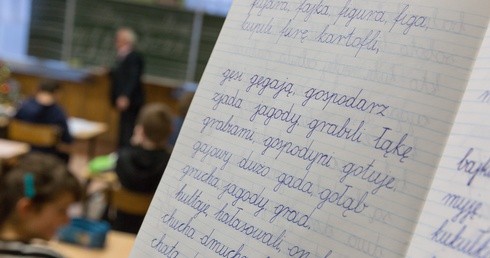 fajka figura, figa,
kupili furę kartofli,
gęsi gęgają, gospodarz
zjada jagody, grabili łąkę
grabiami, gospodyni gotuje,
gajowy dużo gada, gołąb
grucha jagody, grad,
hałasowali, on
chucha dmucha
chata
bajk
myje
kukuł